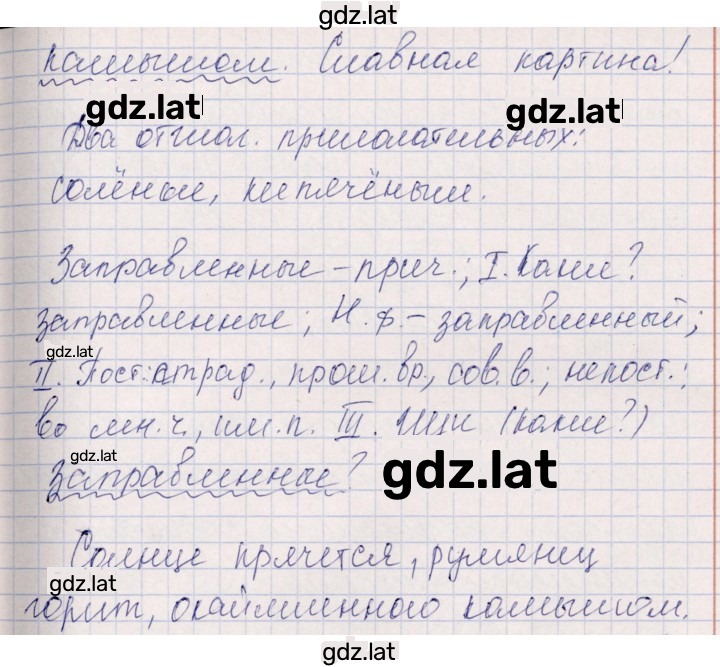 gdz.lat
камышом. Славная картина!
gdz.lat gdz.lat
Два отглаг. прилагательных:
солёные, кипячёным.
Заправленные – прич.; I. Какие?
заправленные; Н.ф. – заправленный;
gdz.lat
II. Пост: страд., прош. вр., сов. в.; непост.:
во мн.ч., им.п. III. (какие?)
gdz.lat
заправленные? gdz.lat
Солнце прячется, румянец
gdz.lat
горит, окаймленного камышом.
gdz.lat